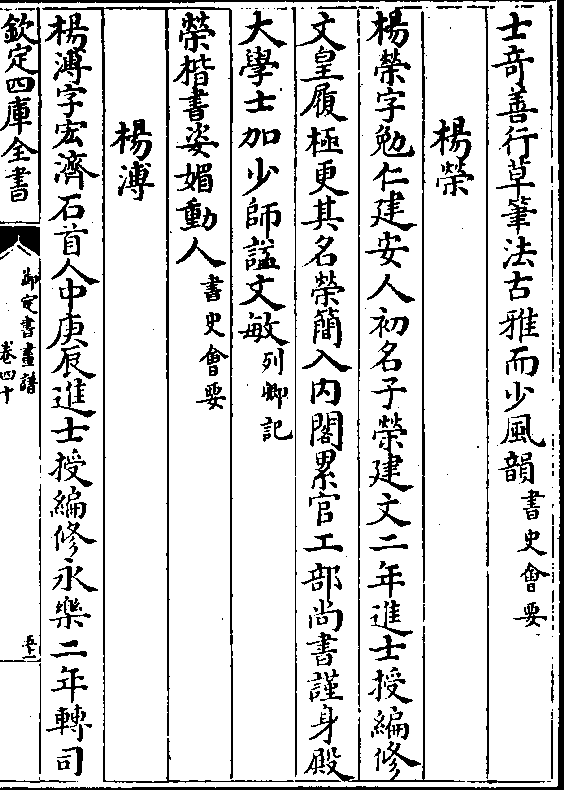 士奇善行草筆法古雅而少風韻書史會要
楊榮
楊榮字勉仁建安人初名子榮建文二年進士授編修
文皇履極更其名榮簡入内閣累官工部尚書謹身殿
大學士加少師諡文敏列卿記
榮楷書姿媚動人書史會要
楊溥
楊溥字宏濟石首人中庚辰進士授編修永樂二年轉司
欽定四庫全書
御定書畫譜
卷四十